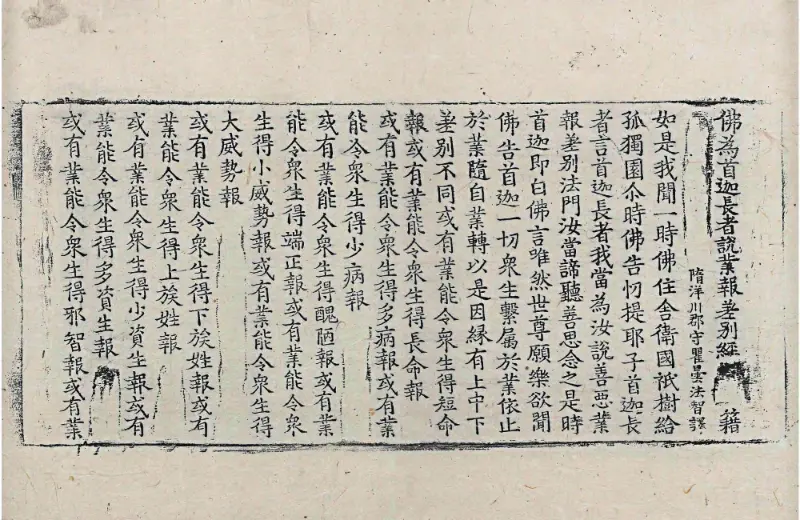 佛為首迦長者說業報差別經 籍
隋洋川郡守瞿曇法智譯
如是我聞一時佛住舍衛國祇樹給
孤獨園尒時佛告忉提耶子首迦長
者言首迦長者我當為汝說善惡業
報差別法門汝當諦聽善思念之是時
首迦即白佛言唯然世尊願樂欲聞
佛告首迦一切眾生繫屬於業依止
於業隨自業轉以是因緣有上中下
差別不同或有業能令眾生得短命
報或有業能令眾生得長命報
或有業能令眾生得多病報或有業
能令眾生得少病報
或有業能令眾生得醜陋報或有業
能令眾生得端正報或有業能令眾
生得小威勢報或有業能令眾生得
大威勢報
或有業能令眾生得下族姓報或有
業能令眾生得上族姓報
或有業能令眾生得少資生報或有
業能令眾生得多資生報
或有業能令眾生得邪智報或有業